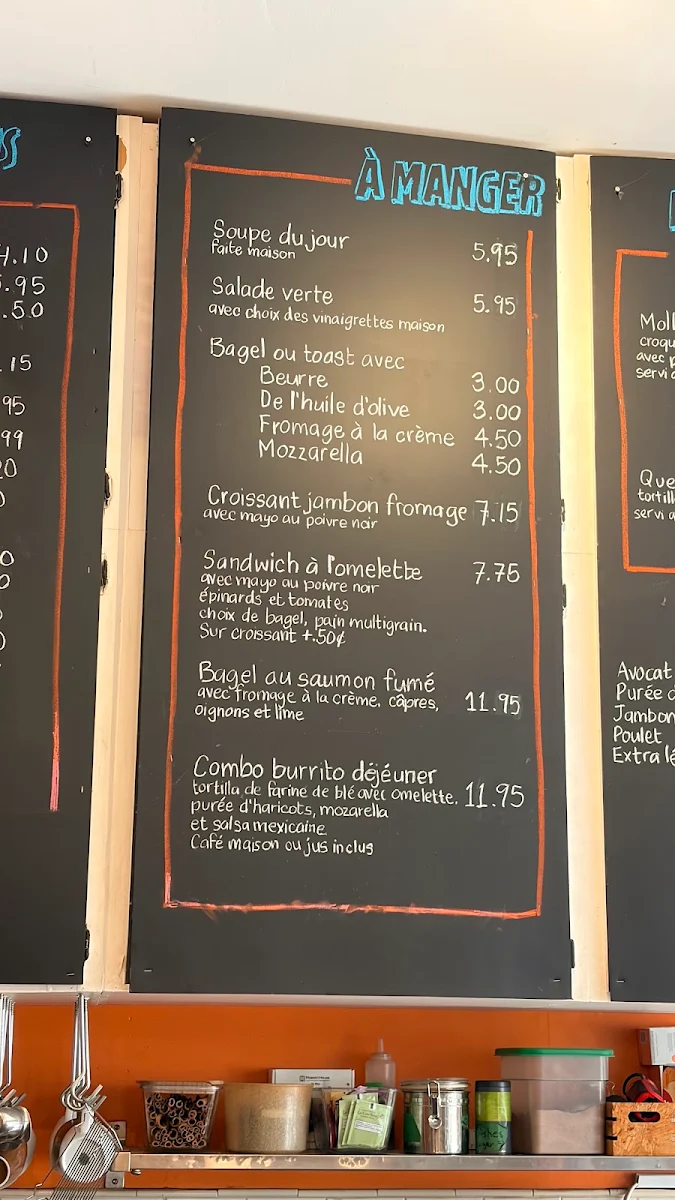 S
4.10
.95
.50
.15
95
99
20
À MANGER
Soupe du jour 5.95
faite maison
Salade verte 5.95
avec choix des vinaigrettes maison
Bagel ou toast avec
Beurre 3.00
De l'huile d'olive 3.00
Fromage à la crème 4.50
Mozzarella 4.50
Croissant jambon fromage 7.15
avec mayo au poivre noir
Sandwich à l'omelette 7.75
avec mayo au poivre noir
épinards et tomates
choix de bagel, pain multigrain.
Sur croissant +.50¢
Bagel au saumon fumé
avec fromage à la crème, câpres, 11.95
oignons et lime
Combo burrito déjéuner
tortilla de farine de blé avec omelette. 11.95
purée d'haricots, mozarella
et salsa mexicaine
Café maison ou jus inclus
Moll
croqu
avec p
servi a
Que
tortill
servi a
Avocat
Purée d
Jambon
Poulet
Extra lé